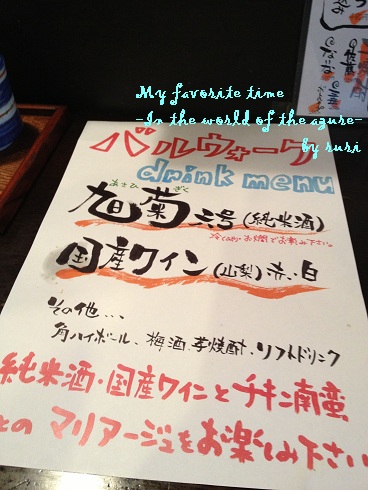 My favorite time
-In the world of the azure-
by ruri
バルウォーク
drink menu
あさひ ぎく
旭菊 六号 (純米酒)
冷(ひや)・お燗でお楽み下さい。
国産ワイン (山梨) 赤・白
その他...
角ハイボール、梅酒、芋焼酎、ソフトドリンク
純米酒・国産ワインとチキン南蛮
との マリアージュをお楽しみ下さい